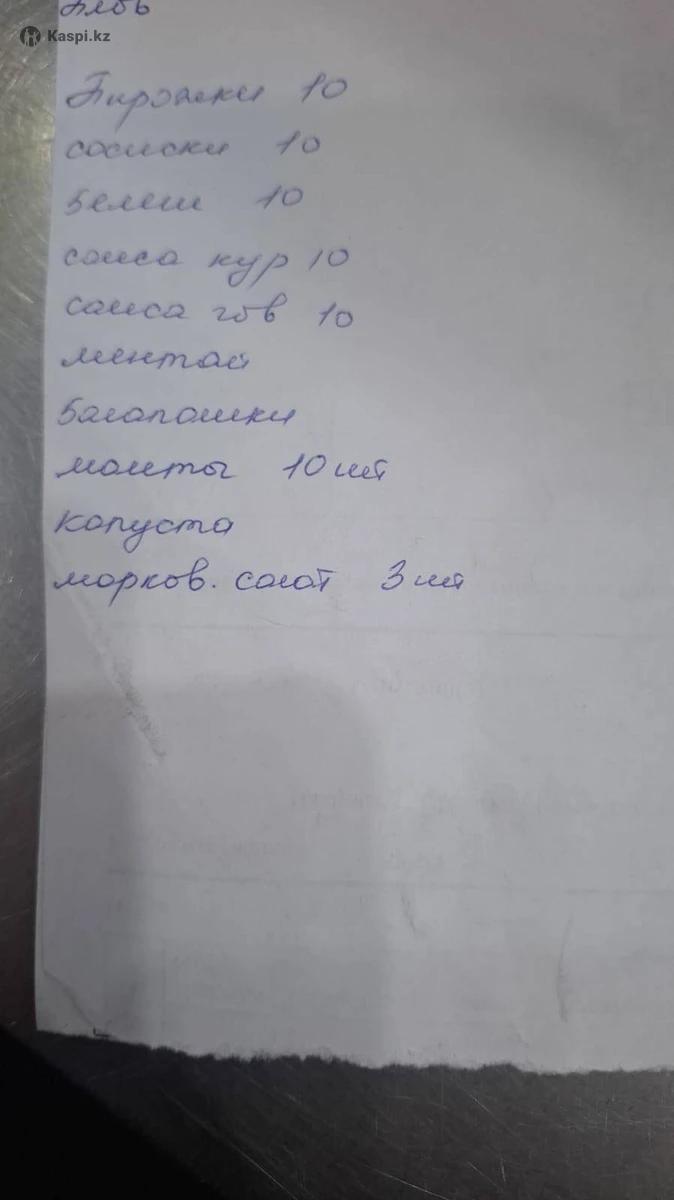 Kaspi.kz
Пирожки 10
сосиски 10
Белеш 10
самса кур 10
самса гов 10
минтай
баклажки
манты 10 шт
капуста
морков. салат 3 шт